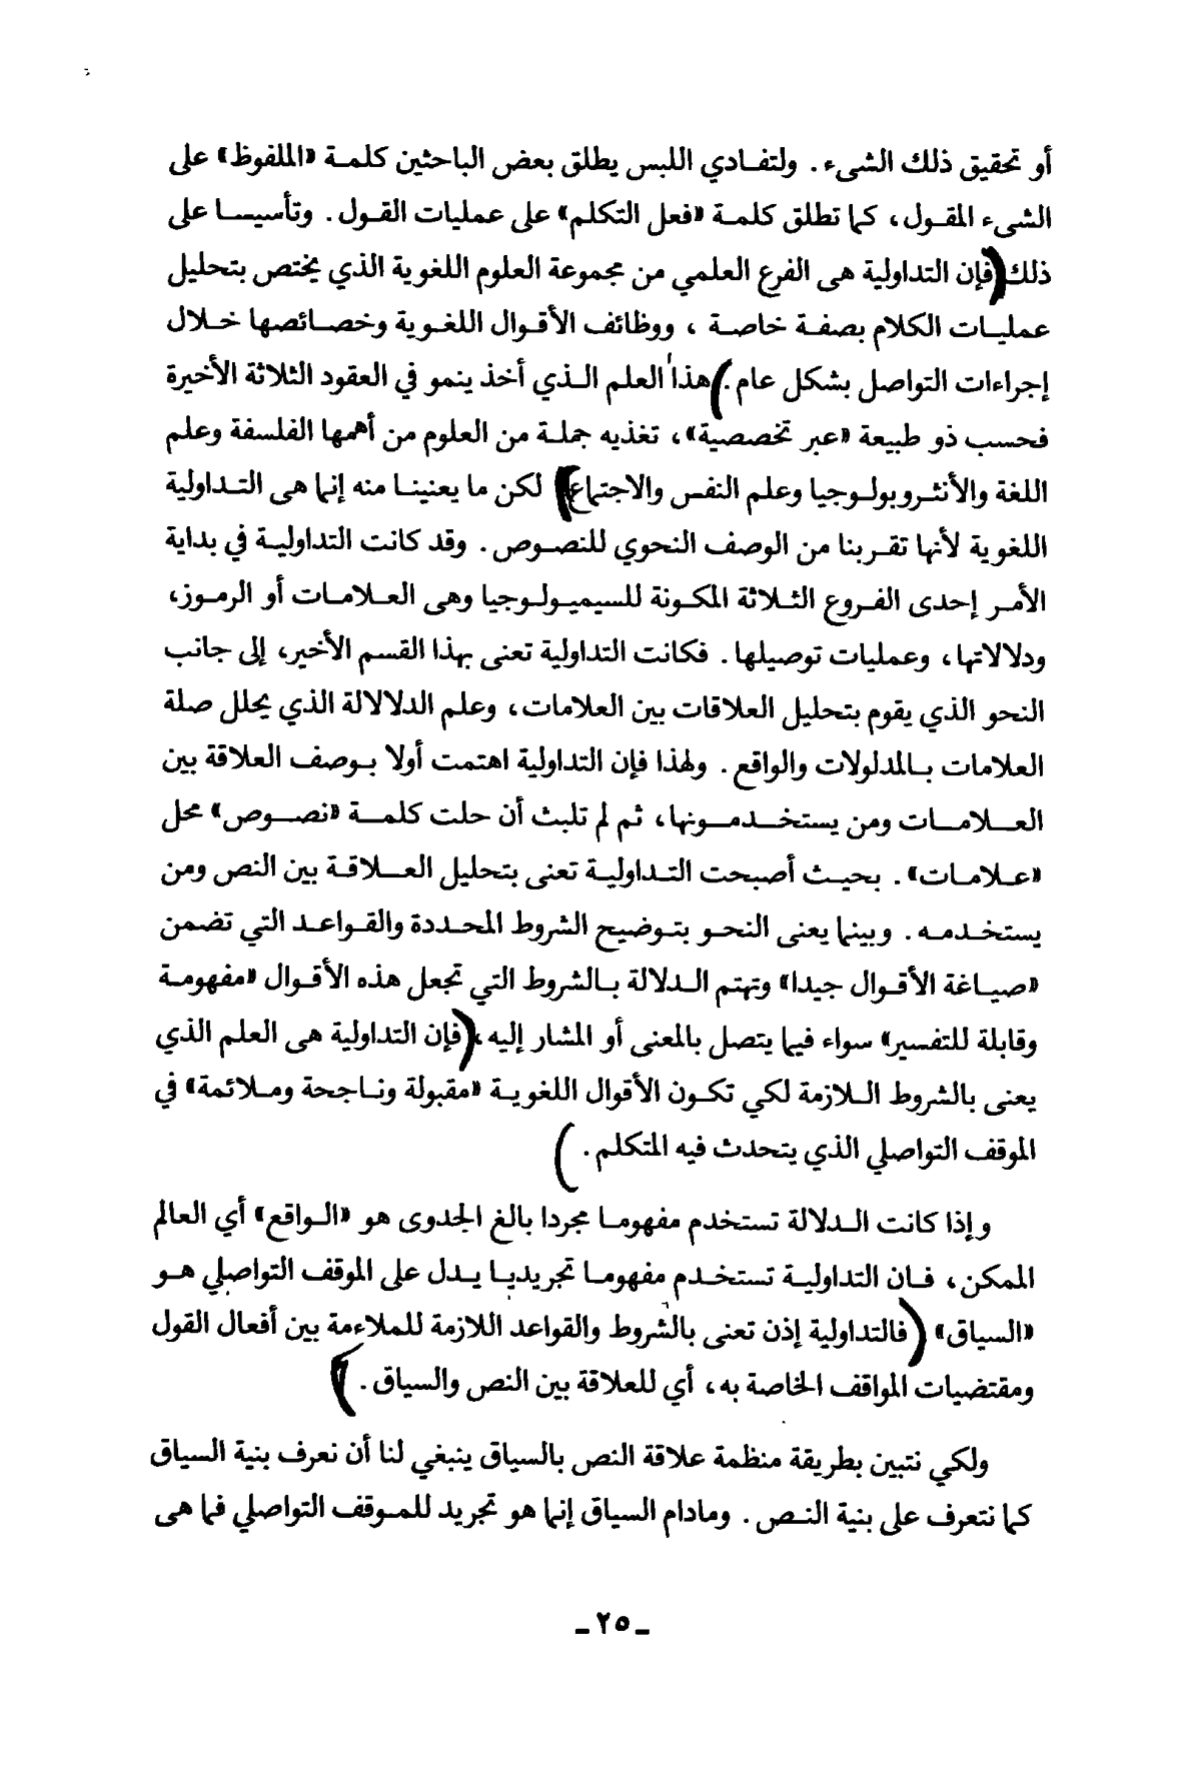 أو تحقيق ذلك الشىء. ولتفادي اللبس يطلق بعض الباحثين كلمة «الملفوظ» على
الشىء المقول، كما تطلق كلمة «فعل التكلم» على عمليات القول. وتأسيسا على
ذلك (فإن التداولية هى الفرع العلمي من مجموعة العلوم اللغوية الذي يختص بتحليل
عمليات الكلام بصفة خاصة، ووظائف الأقوال اللغوية وخصائصها خلال
إجراءات التواصل بشكل عام.) هذا العلم الذي أخذ ينمو في العقود الثلاثة الأخيرة
فحسب ذو طبيعة «عبر تخصصية»، تغذيه جملة من العلوم من أهمها الفلسفة وعلم
اللغة والأنثروبولوجيا وعلم النفس والاجتماع) لكن ما يعنينا منه إنما هى التداولية
اللغوية لأنها تقربنا من الوصف النحوي للنصوص. وقد كانت التداولية في بداية
الأمر إحدى الفروع الثلاثة المكونة للسيميولوجيا وهى العلامات أو الرموز،
ودلالاتها، وعمليات توصيلها. فكانت التداولية تعنى بهذا القسم الأخير، إلى جانب
النحو الذي يقوم بتحليل العلاقات بين العلامات، وعلم الدلالالة الذي يحلل صلة
العلامات بالمدلولات والواقع. ولهذا فإن التداولية اهتمت أولا بوصف العلاقة بين
العلامات ومن يستخدمونها، ثم لم تلبث أن حلت كلمة «نصوص» محل
«علامات». بحيث أصبحت التداولية تعنى بتحليل العلاقة بين النص ومن
يستخدمه. وبينما يعنى النحو بتوضيح الشروط المحددة والقواعد التي تضمن
«صياغة الأقوال جيدا» وتهتم الدلالة بالشروط التي تجعل هذه الأقوال «مفهومة
وقابلة للتفسير» سواء فيما يتصل بالمعنى أو المشار إليه، (فإن التداولية هى العلم الذي
يعنى بالشروط اللازمة لكي تكون الأقوال اللغوية «مقبولة وناجحة وملائمة» في
الموقف التواصلي الذي يتحدث فيه المتكلم.)
وإذا كانت الدلالة تستخدم مفهوما مجردا بالغ الجدوى هو «الواقع» أي العالم
الممكن، فان التداولية تستخدم مفهوما تجريديا يدل على الموقف التواصلي هو
«السياق» (فالتداولية إذن تعنى بالشروط والقواعد اللازمة للملاءمة بين أفعال القول
ومقتضيات المواقف الخاصة به، أي للعلاقة بين النص والسياق.)
ولكي نتبين بطريقة منظمة علاقة النص بالسياق ينبغي لنا أن نعرف بنية السياق
كما نتعرف على بنية النص. ومادام السياق إنما هو تجريد للموقف التواصلي فما هى
ـ ٢٥ ـ